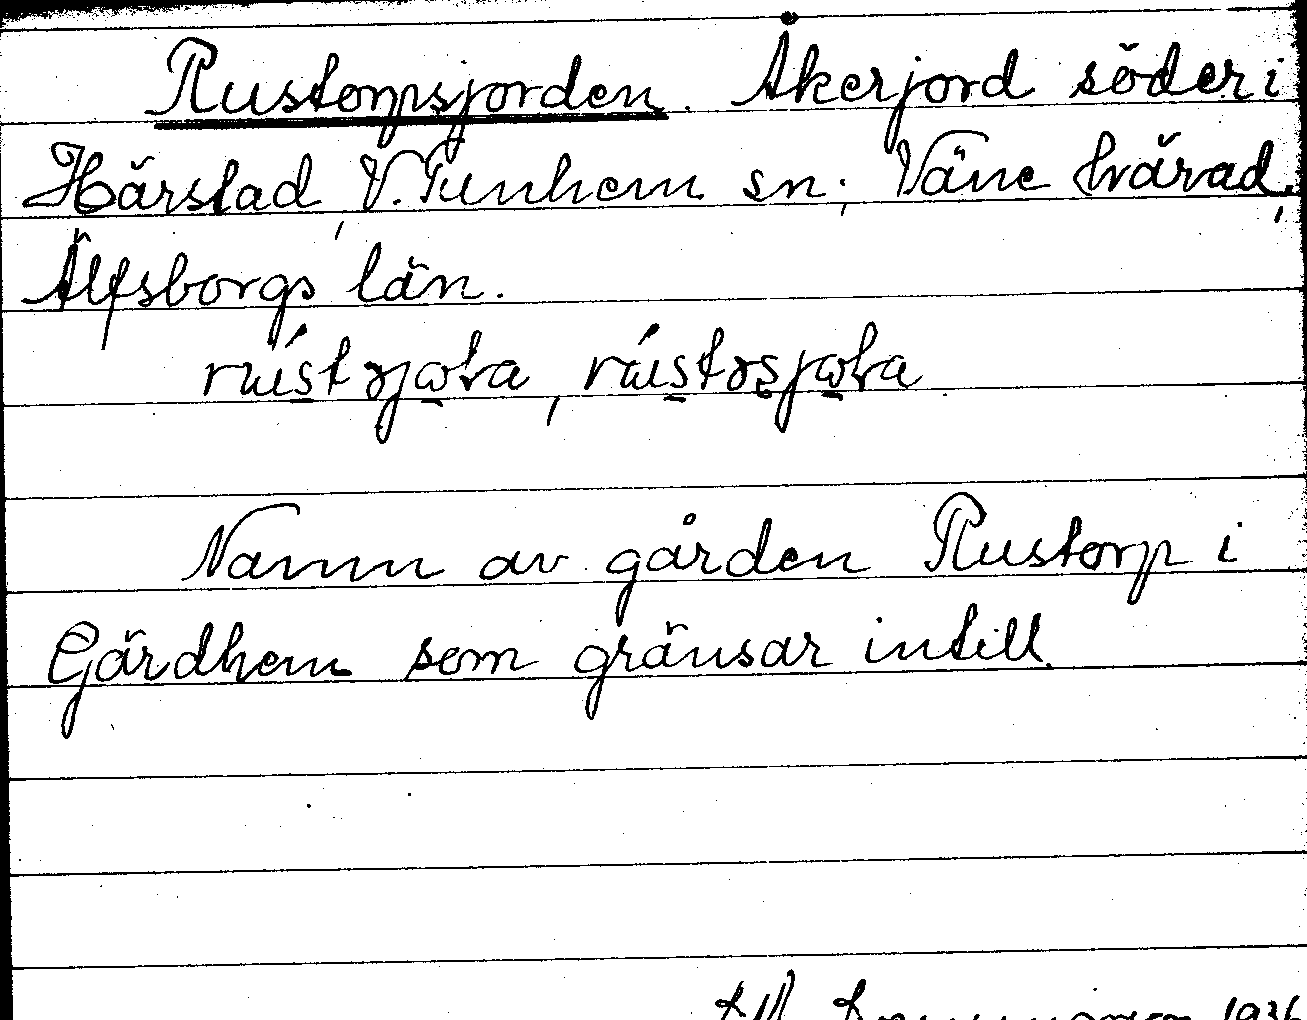 Rustorpsjorden. Åkerjord söder i
Härstad, V. Tunhem sn., Väne härad,
Älfsborgs län.
Namn av gården Rustorp i
Gärdhem som gränsar intill.
1936